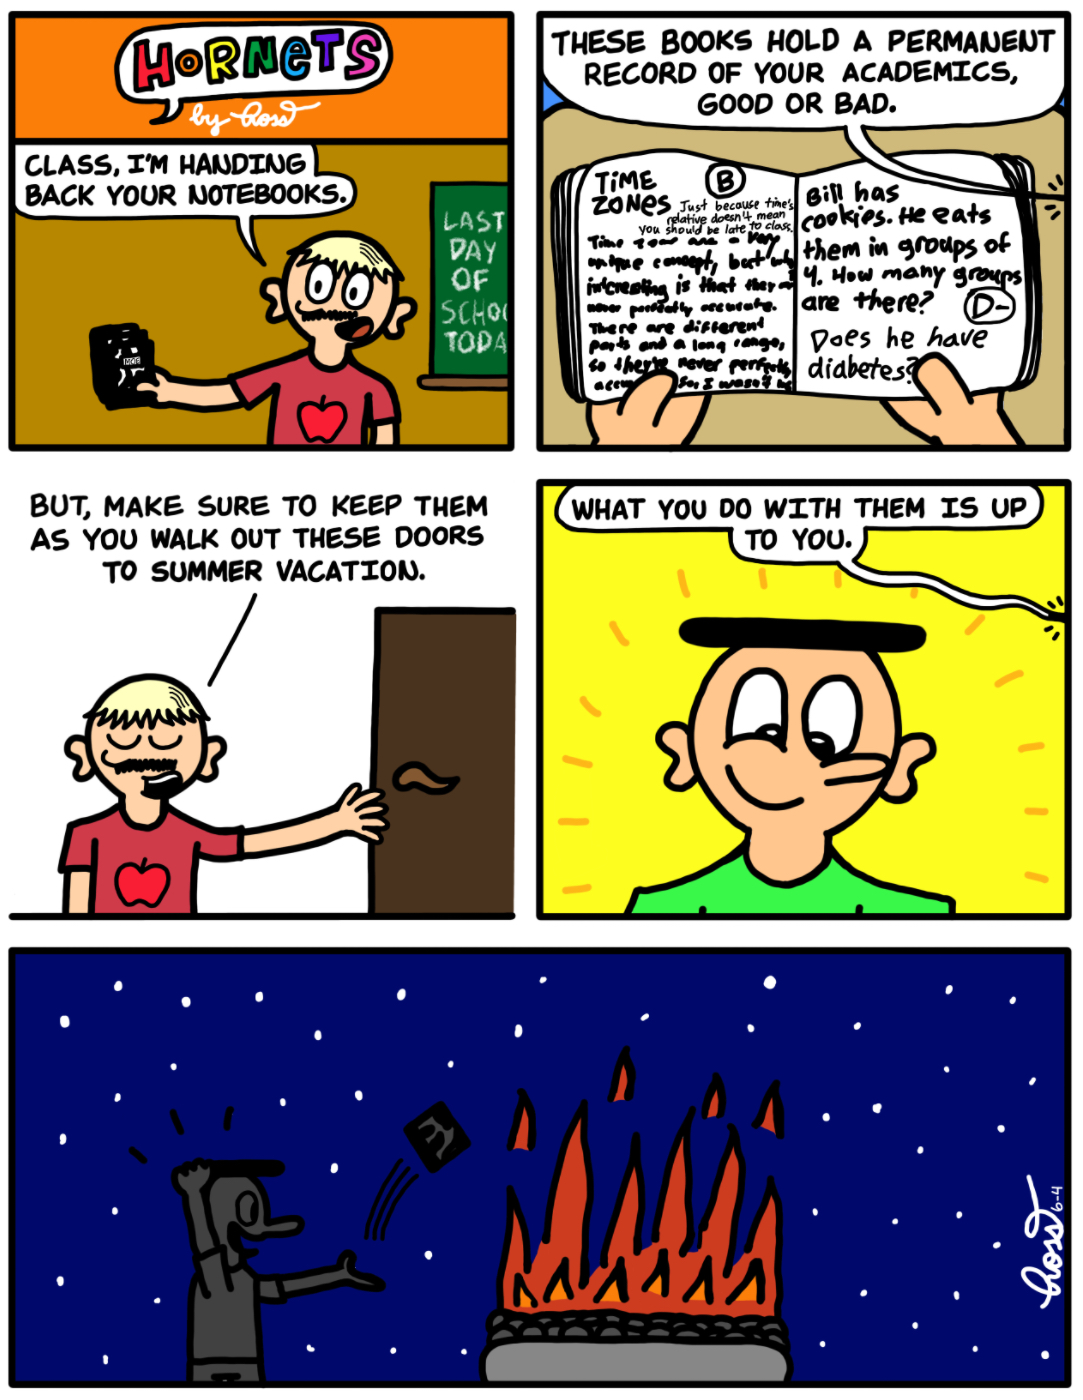 HORNETS
by Ross
CLASS, I'M HANDING
BACK YOUR NOTEBOOKS.
LAST
DAY
OF
SCHOO
TODA
MOE
THESE BOOKS HOLD A PERMANENT
RECORD OF YOUR ACADEMICS,
GOOD OR BAD.
TIME
ZONES
B
Just because time's
relative doesn't mean
you should be late to class.
Time are a very
unique concept, but
interesting is that they
never perfectly accurate.
There are different
parts and a long range,
so they're never perfectly
accu So, I wasn't
Bill has
cookies. He eats
them in groups of
4. How many groups
are there?
D-
Does he have
diabetes?
BUT, MAKE SURE TO KEEP THEM
AS YOU WALK OUT THESE DOORS
TO SUMMER VACATION.
WHAT YOU DO WITH THEM IS UP
TO YOU.
Ross
6-4